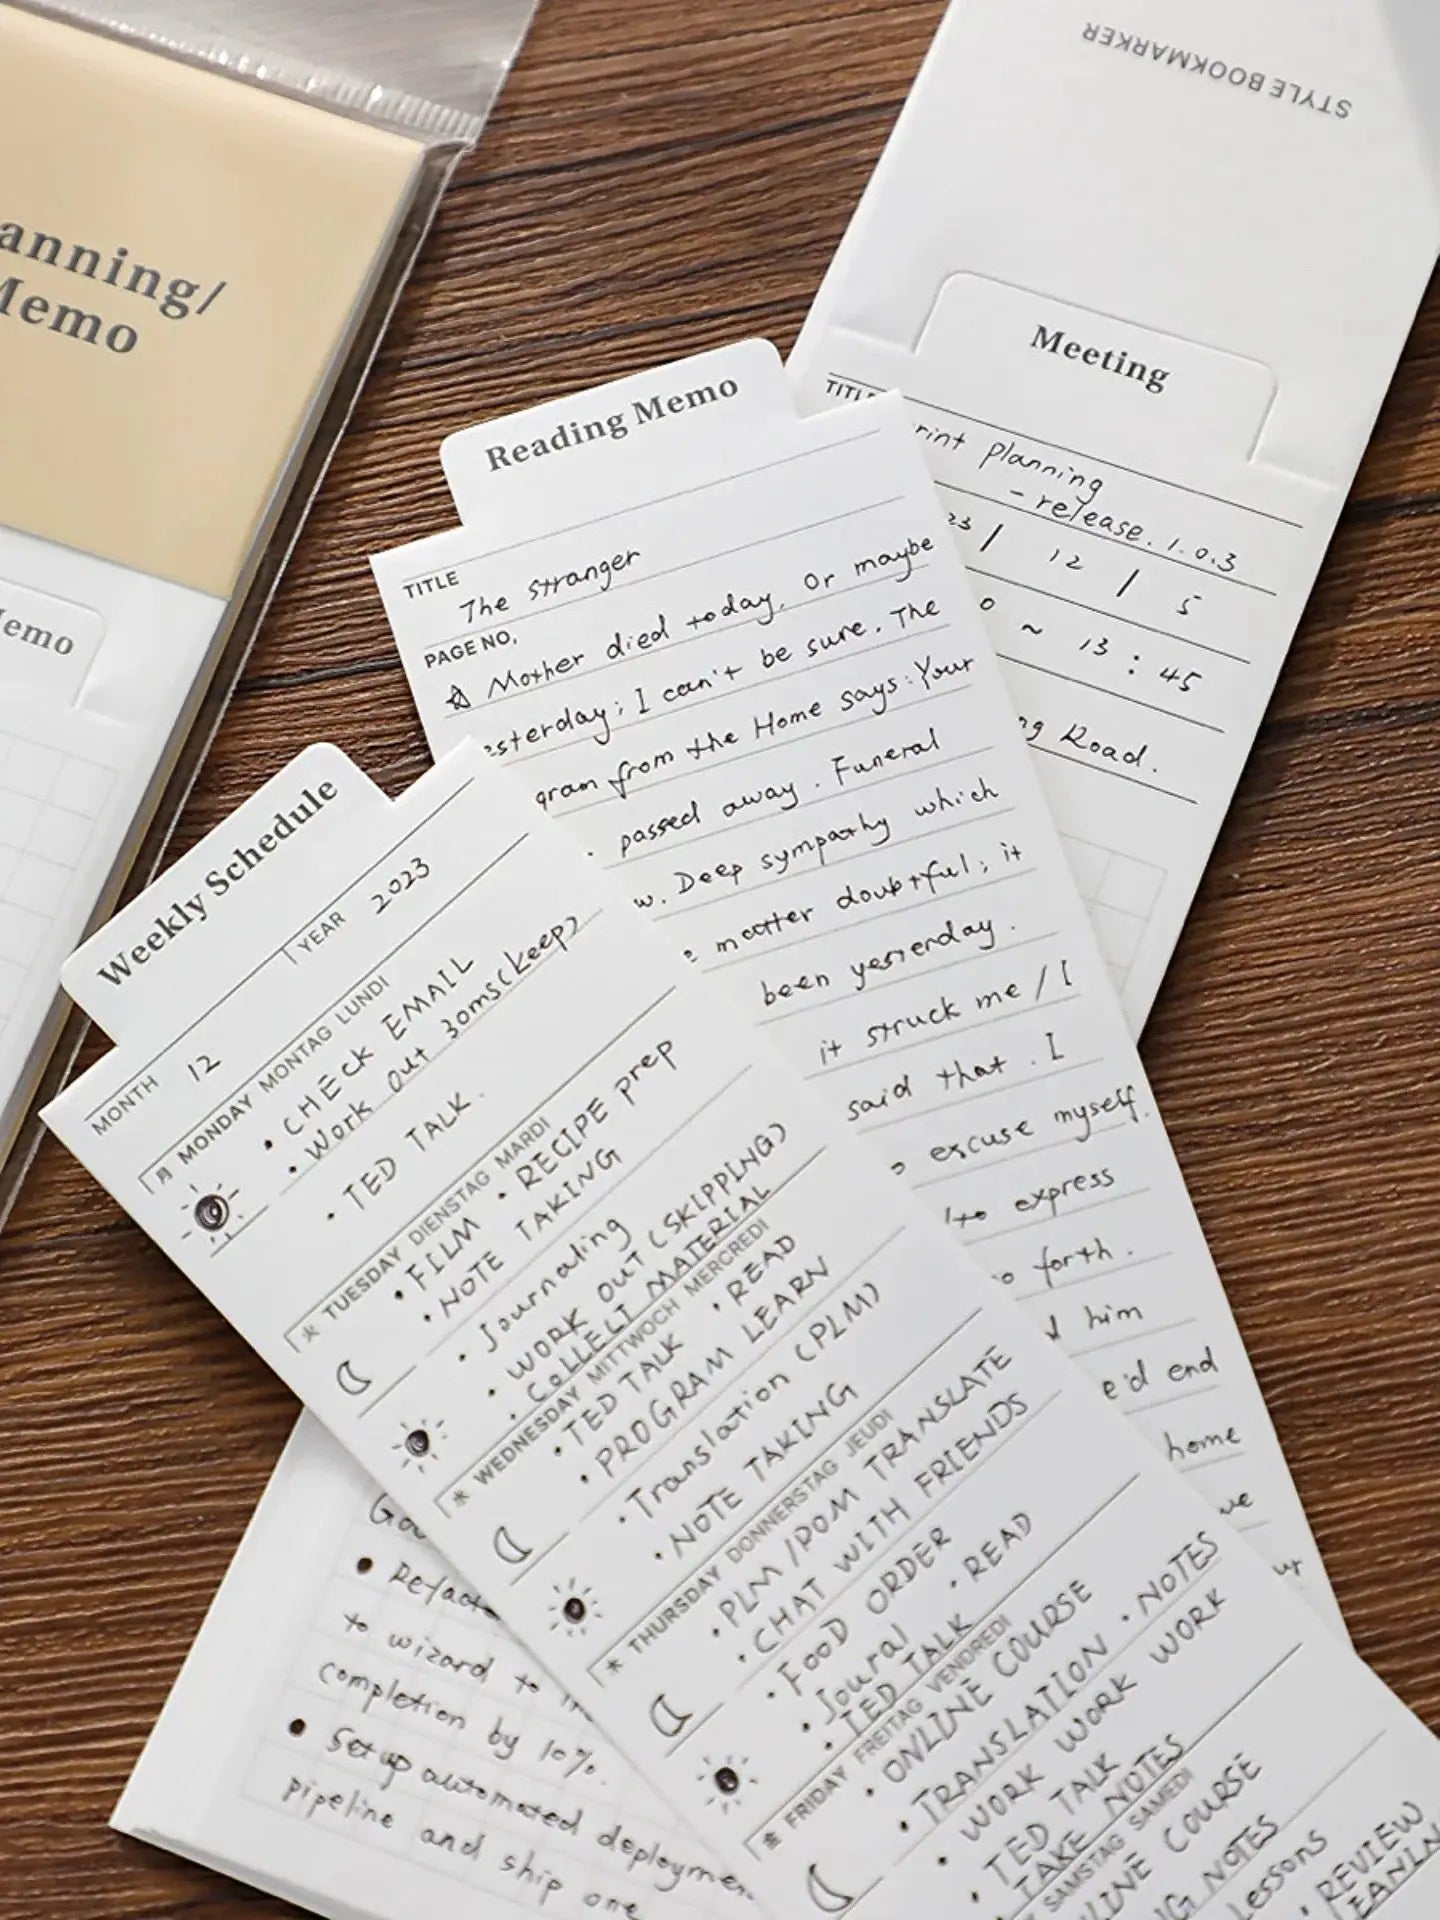 STYLE BOOKMARKER
anning/
Memo
Memo
Meeting
TITLE
rint planning
- release. 1.0.3
23 / 12 / 5
0 ~ 13 : 45
ng Road.
Reading Memo
TITLE The stranger
PAGE NO.
☆ Mother died today. Or maybe
esterday; I can't be sure. The
gram from the Home says: Your
passed away. Funeral
w. Deep sympathy which
e matter doubtful; it
been yesterday.
it struck me / I
said that. I
o excuse myself.
to express
o forth.
d him
e'd end
home
ve
ur
Weekly Schedule
MONTH 12 YEAR 2023
月 MONDAY MONTAG LUNDI
• CHECK EMAIL
• Work out 30ms (keep)
• TED TALK.
火 TUESDAY DIENSTAG MARDI
• FILM • RECIPE prep
• NOTE TAKING
• Journaling
• WORK OUT (SKIPPING)
• COLLECT MATERIAL
水 WEDNESDAY MITTWOCH MERCREDI
• TED TALK • READ
• PROGRAM LEARN
• Translation (PLM)
• NOTE TAKING
木 THURSDAY DONNERSTAG JEUDI
• PLM / POM TRANSLATE
• CHAT WITH FRIENDS
• FOOD ORDER
• Joural • READ
• TED TALK
金 FRIDAY FREITAG VENDREDI
• ONLINE COURSE
• TRANSLATION • NOTES
• WORK WORK WORK
• TED TALK
TAKE NOTES
SAMSTAG SAMEDI
LINE COURSE
NG NOTES
Lessons
• REVIEW
EANIN
Goa
• Refacto
to wizard to in
completion by 10%.
• Set up automated deploymen
pipeline and ship one